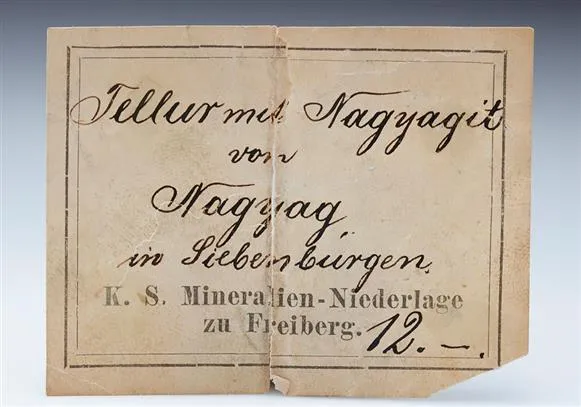 Tellur mit Nagyagit
von
Nagyag
in Siebenbürgen.
K. S. Mineralien-Niederlage
zu Freiberg. 12.–.